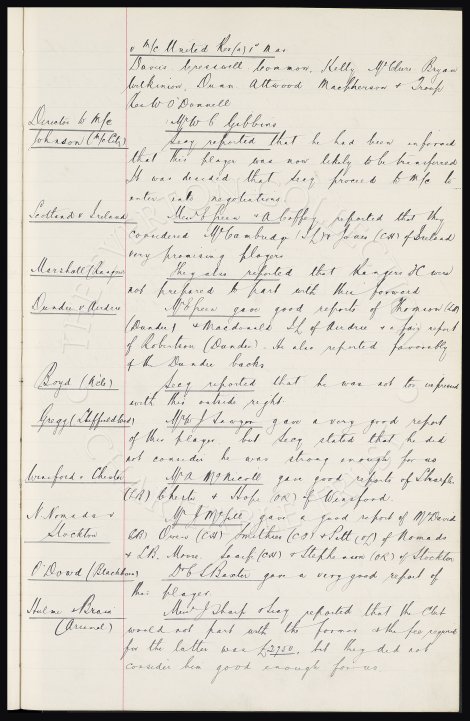 v M/c United Res(a) 1st Mar
Davies, Cresswell Common, Kelly McClure Bryan
Wilkinson, Dunn Attwood MacPherson & Troup
Res W O'Donnell
Mr W C Gibbins
Director to M/c
Johnson (M/c City) Secy reported that he had been informed
that this player was now likely to be transferred
It was decided that Secy proceed to M/c to
enter into negotiations.
Scotland & Ireland Messrs Green & A Coffey reported that they
considered McCambridge (IL) & Jones (CH) of Ireland
very promising players
Marshall (Rangers) They also reported that Rangers FC were
not prepared to part with their forward
Dundee v Airdrie Mr Green gave good reports of Thomson (LB)
(Dundee) & Macdonald IL of Airdrie & a fair report
of Robertson (Dundee). He also reported favorably
of the Dundee backs
Boyd ( Secy reported that he was not too impressed
with this outside right.
Gregg (Sheffield Wed) Mr J Sawyer gave a very good report
of this player but Secy stated that he did
not consider he was strong enough for us
Winsford v Chester Mr A McNicoll gave good reports of
(CR) Chester & Hop (OR) of Winsford.
N. Nomads v Mr J McGill gave a good report of McDavid
Stockton (LR) Owen (CH) Smithies (CF) & Pitt (OL) of Nomads
& LB. Moore (CH) & Stephenson (OR) of Stockton
O'Dowd (Blackburn) Dr C S Baxter gave a very good report of
this player.
Hulme & Brain Messrs J Sharp & Secy reported that the Club
(Arsenal) would not part with the former & the fee required
for the latter was £2750, but they did not
consider him good enough for us